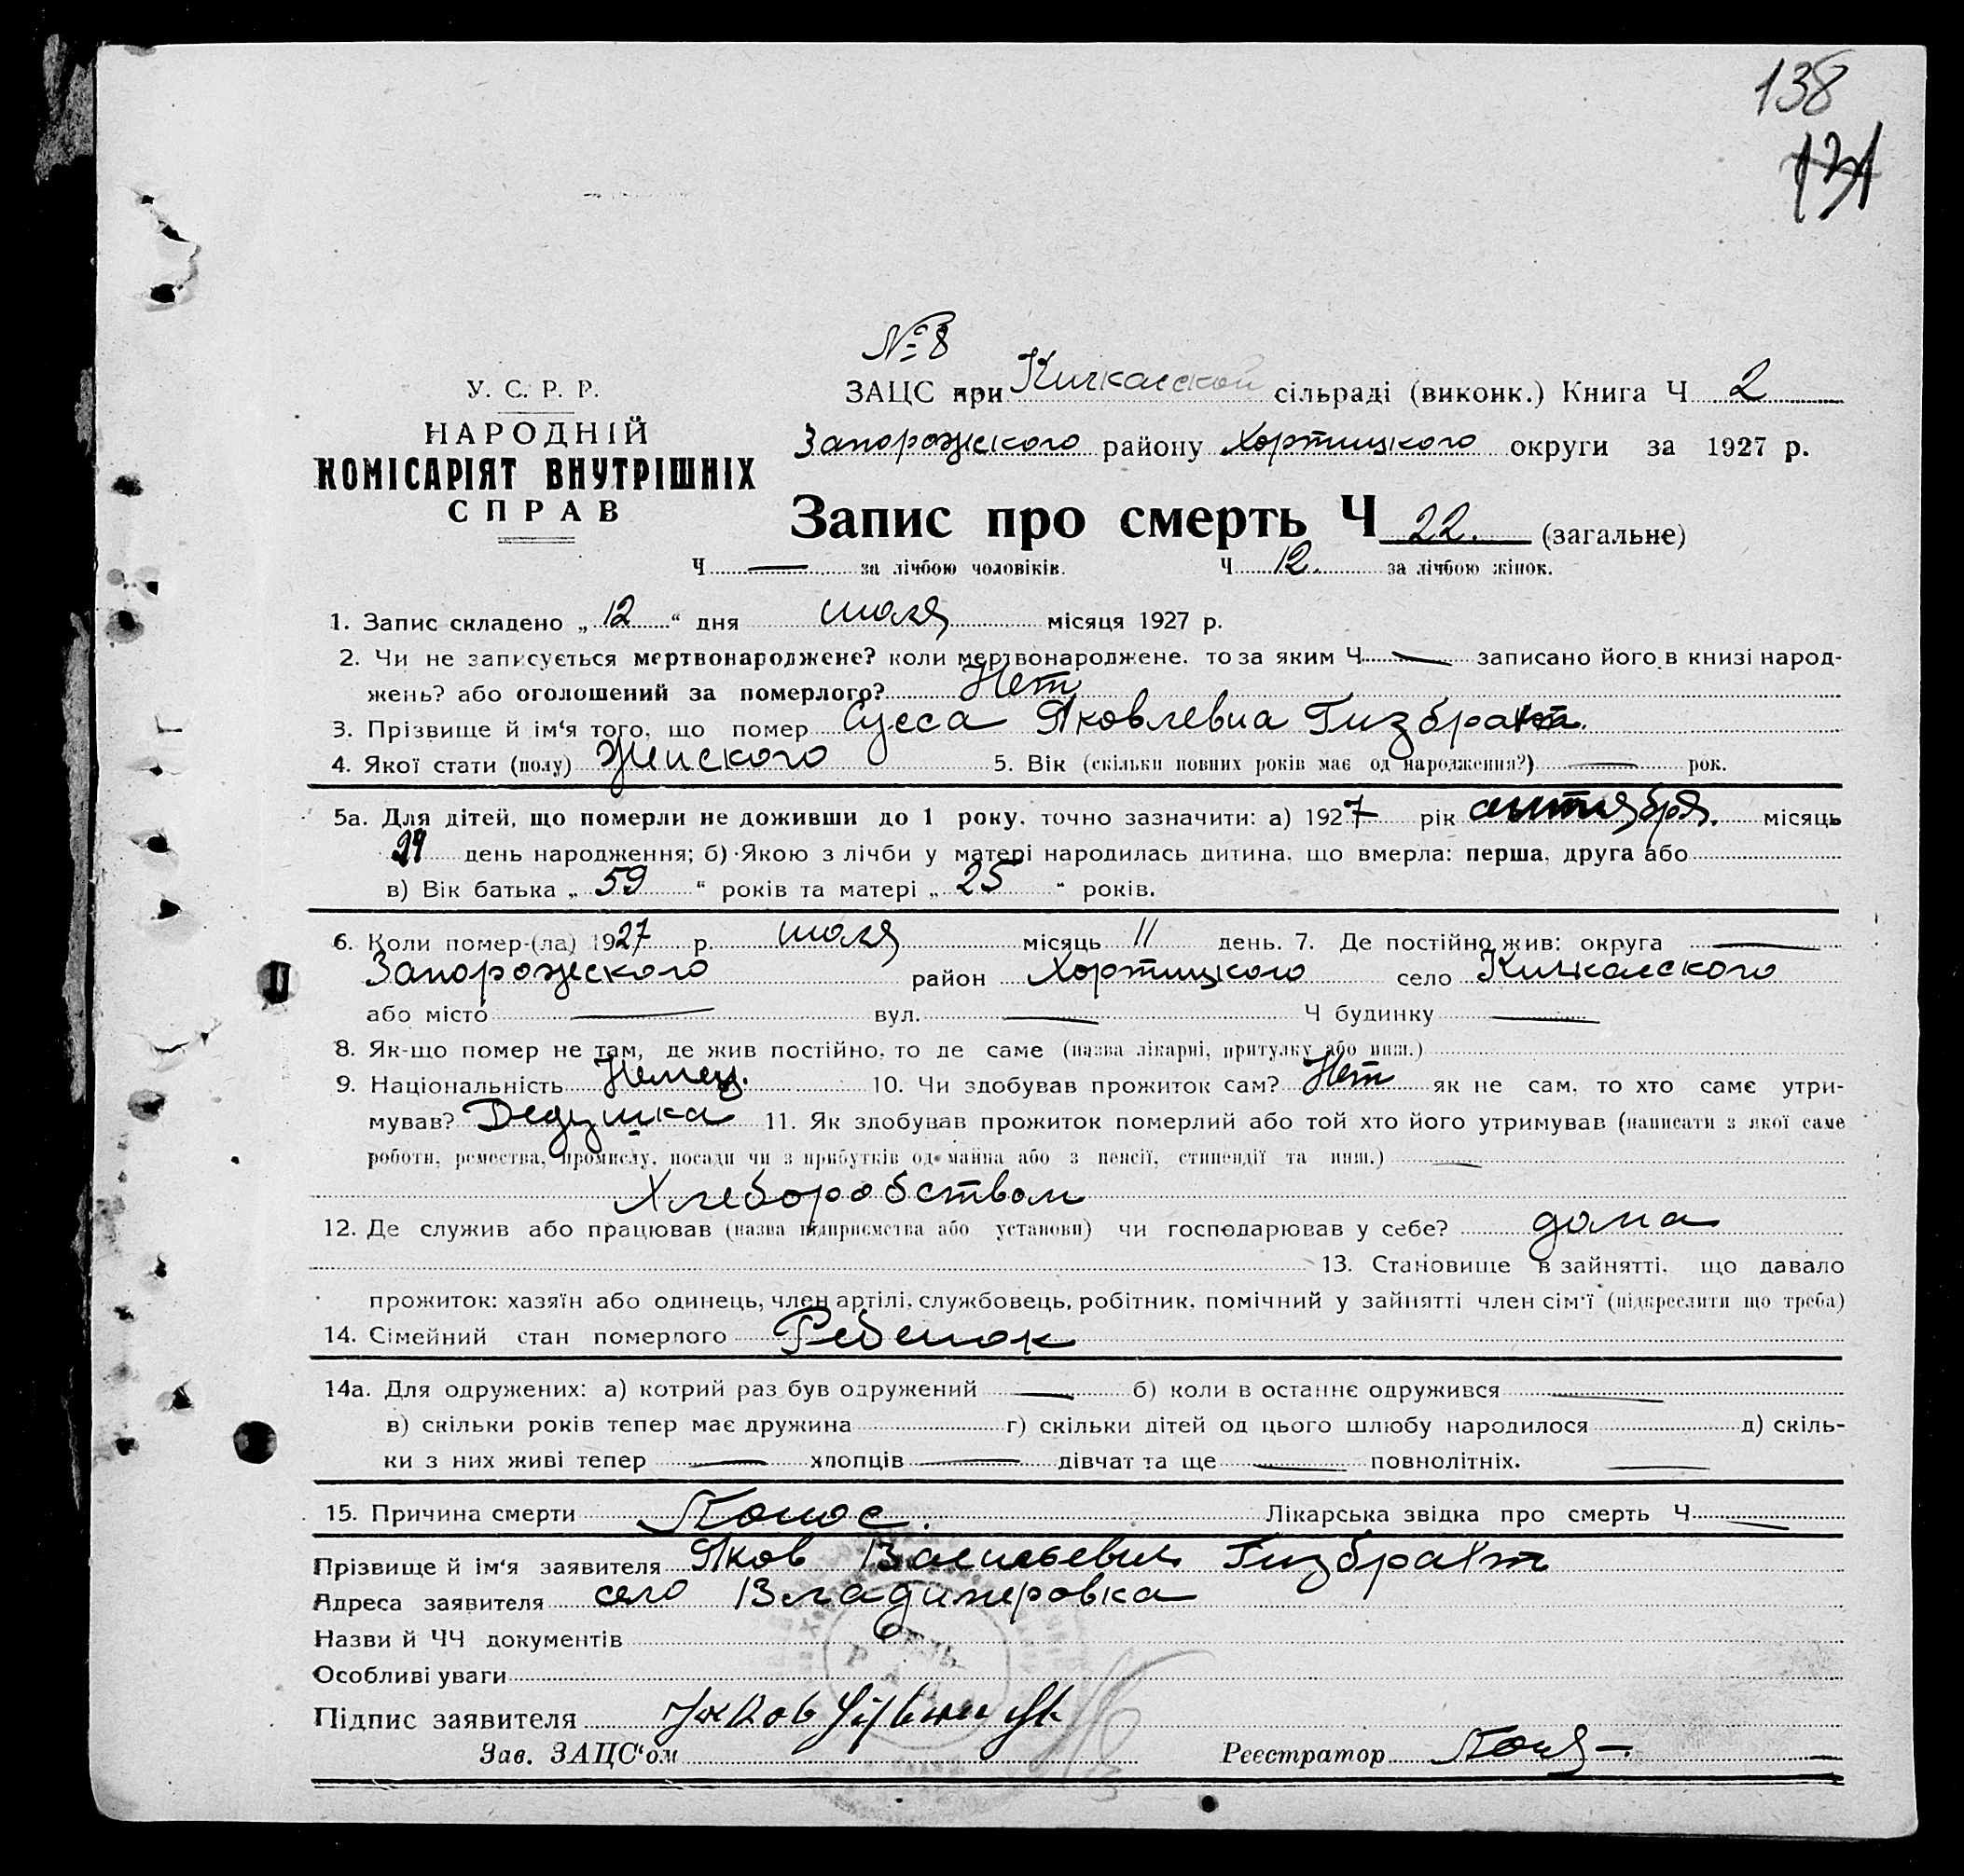 138
131
№ 8
У. С. Р. Р.
НАРОДНІЙ
КОМІСАРІЯТ ВНУТРІШНІХ
СПРАВ
ЗАЦС при Кичкасской сільраді (виконк.) Книга Ч 2
Запорожского району Хортицкого округи за 1927 р.
Запис про смерть Ч 22. (загальне)
Ч — за лічбою чоловіків. Ч 12. за лічбою жінок.
1. Запис складено „ 12 “ дня июля місяця 1927 р.
2. Чи не записується мертвонароджене? коли мертвонароджене, то за яким Ч — записано його в книзі народ-
жень? або оголошений за померлого? Нет
3. Прізвище й ім‘я того, що помер Суса Яковлевна Гизбрахт.
4. Якої стати (полу) Женского 5. Вік (скільки повних років має од народження?) — рок.
5а. Для дітей, що померли не доживши до 1 року, точно зазначити: а) 1927 рік сентября. місяць
29 день народження; б) Якою з лічби у матері народилась дитина, що вмерла: перша, друга або
в) Вік батька „ 59 “ років та матері „ 25 “ років.
6. Коли помер-(ла) 1927 р. июля місяць 11 день. 7. Де постійно жив: округа —
Запорожского район Хортицкого село Кичкасского
або місто — вул. — Ч будинку —
8. Як-що помер не там, де жив постійно, то де саме (назва лікарні, притулку або инш.)
9. Національність Немец. 10. Чи здобував прожиток сам? Нет як не сам, то хто саме утри-
мував? Дедушка 11. Як здобував прожиток померлий або той хто його утримував (написати з якої саме
роботи, ремества, промислу, посади чи з прибутків од майна або з пенсії, стипендії та инш.) —
Хлеборобством
12. Де служив або працював (назва підприємства або установи) чи господарював у себе? дома
13. Становище в зайнятті, що давало
прожиток: хазяїн або одинець, член артілі, службовець, робітник, помічний у зайнятті член сім‘ї (підкреслити що треба)
14. Сімейний стан померлого Ребенок
14а. Для одружених: а) котрий раз був одружений — б) коли в останнє одружився —
в) скільки років тепер має дружина г) скільки дітей од цього шлюбу народилося д) скіль-
ки з них живі тепер — хлопців — дівчат та ще — повнолітніх. —
15. Причина смерти Понос. Лікарська звідка про смерть Ч —
Прізвище й ім‘я заявителя Яков Васильевич Гизбрахт
Адреса заявителя село Владимеровка
Назви й ЧЧ документів
Особливі уваги
Підпис заявителя
Зав. ЗАЦС‘ом Реєстратор